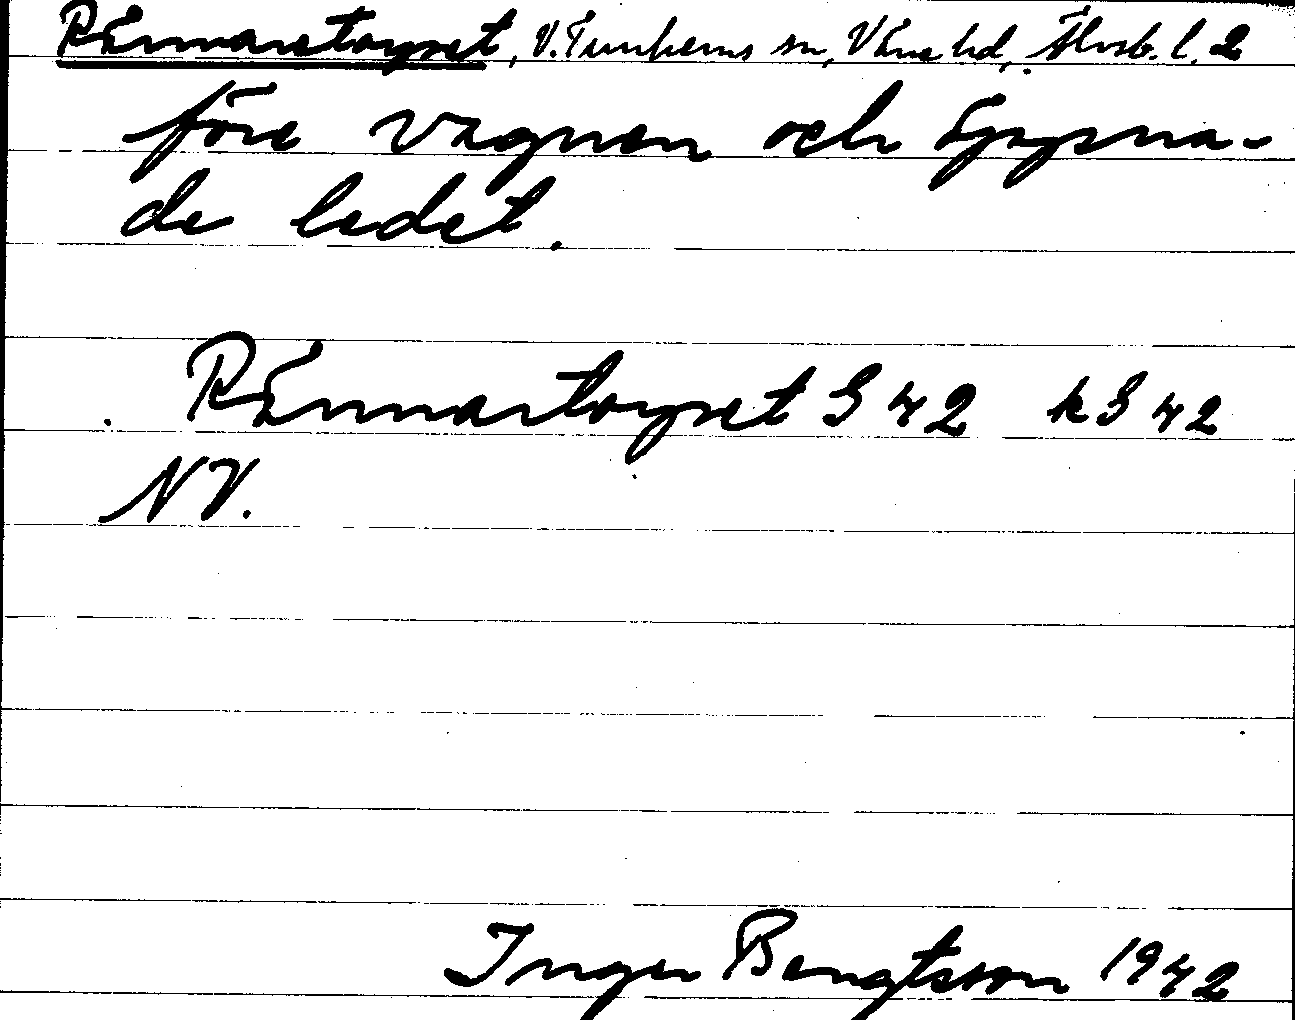 Rännaretorpet, V. Tunhems sn, Väne hd, Älvsb. l. 2
före vagnen och öppna-
de ledet.
Rännartorpet G 42 kG 42
NV.
Inger Bengtsson 1942